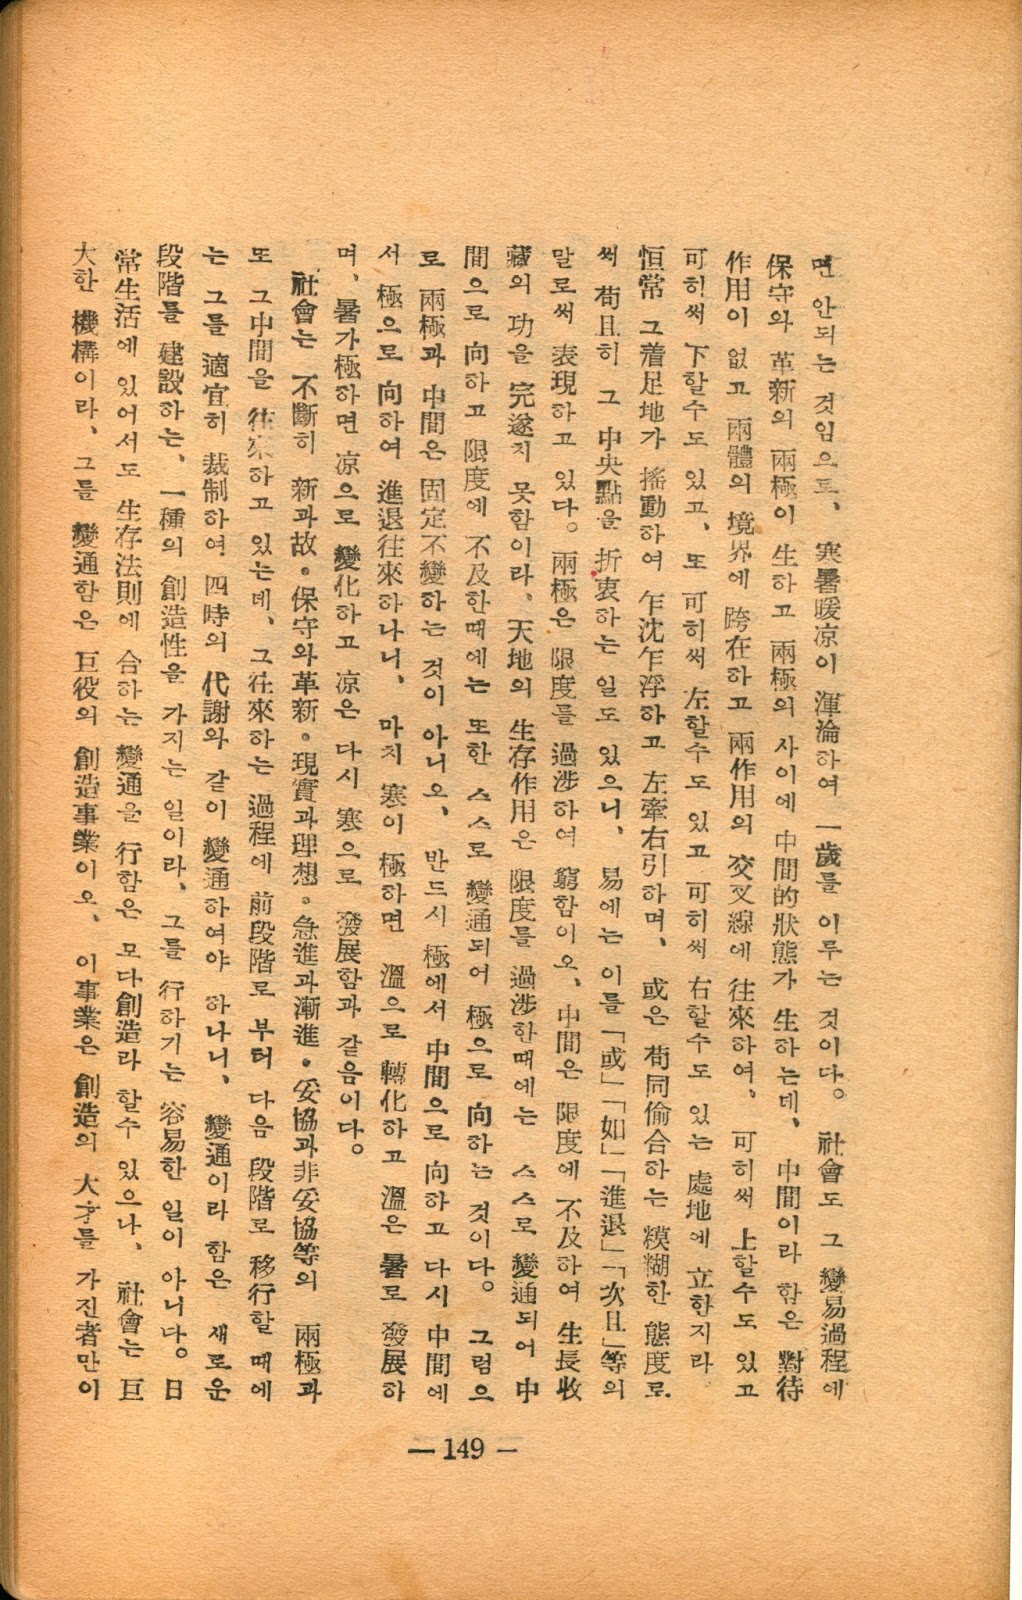 면 안되는 것임으로、 寒暑暖凉이 渾淪하여 一歲를 이루는 것이다。 社會도 그 變易過程에
保守와 革新의 兩極이 生하고 兩極의 사이에 中間的狀態가 生하는데、 中間이라 함은 對待
作用이 없고 兩體의 境界에 跨在하고 兩作用의 交叉線에 往來하여、 可히써 上할수도 있고
可히써 下할수도 있고、 또 可히써 左할수도 있고 可히써 右할수도 있는 處地에 立한지라
恒常 그 着足地가 搖動하여 乍沈乍浮하고 左牽右引하며、 或은 苟同偷合하는 糢糊한 態度로
써 苟且히 그 中央點을 折衷하는 일도 있으니、 易에는 이를「或」「如」「進退」「次且」等의
말로써 表現하고 있다。 兩極은 限度를 過涉하여 窮함이오、中間은 限度에 不及하여 生長收
藏의 功을 完遂치 못함이라、天地의 生存作用은 限度를 過涉한때에는 스스로 變通되어 中
間으로 向하고 限度에 不及한때에는 또한 스스로 變通되어 極으로 向하는 것이다。 그럼으
로 兩極과 中間은 固定不變하는 것이 아니오、 반드시 極에서 中間으로 向하고 다시 中間에
서 極으로 向하여 進退往來하나니、 마치 寒이 極하면 溫으로 轉化하고 溫은 暑로 發展하
며、暑가極하면 凉으로 變化하고 凉은 다시 寒으로 發展함과 같음이다。
社會는 不斷히 新과故。保守와革新。現實과理想。急進과漸進。妥協과非妥協等의 兩極과
또 그中間을 往來하고 있는데、그往來하는 過程에 前段階로 부터 다음 段階로 移行할 때에
는 그를 適宜히 裁制하여 四時의 代謝와 같이 變通하여야 하나니、 變通이라 함은 새로운
段階를 建設하는、一種의 創造性을 가지는 일이라、그를 行하기는 容易한 일이 아니다。日
常生活에 있어서도 生存法則에 合하는 變通을 行함은 모다創造라 할수 있으나、 社會는 巨
大한 機構이라、그를 變通함은 巨役의 創造事業이오、이事業은 創造의 大才를 가진者만이
— 149 —